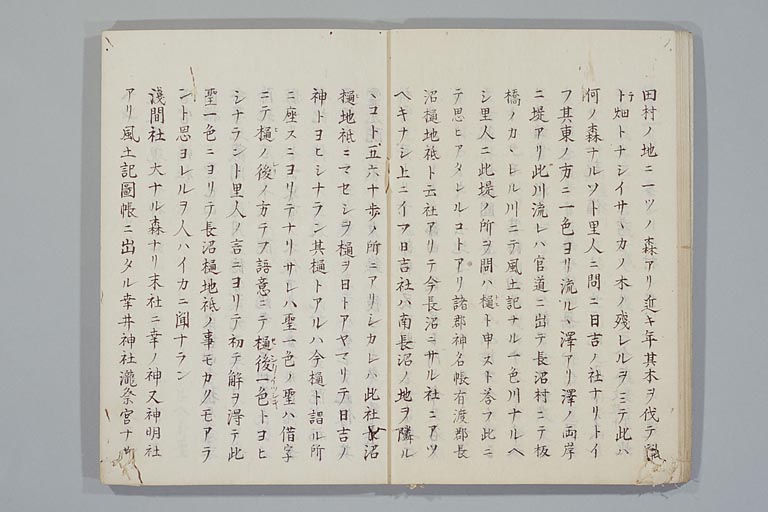 田村ノ地ニ一ツノ森アリ近キ年其木ヲ伐テ
ト畑トナシイサヽカノ木ノ殘レルヲミテ此ハ
何ノ森ナルソト里人ニ問ニ日吉ノ社ナリトイ
フ其東ノ方ニ一色ヨリ流ルヽ澤アリ澤ノ両岸
ニ堤アリ此川流レハ官道ニ出テ長沼村ニテ板
橋ノカヽレル川ニテ風土記ナル一色川ナルヘ
シ里人ニ此堤ノ所ヲ問ハ樋ト申スト荅フ此ニ
テ思ヒアタレルコトアリ諸郡神名帳有渡郡長
沼樋地祗ト云社アリテ今長沼ニサル社ニアツ
ヘキナシ上ニイフ日吉社ハ南長沼ノ地ヲ隣ル
ヽコト五六十歩ノ所ニアリシカレハ此社長沼
樋地祗ニマセシヲ樋ヲ日トアヤマリテ日吉ノ
神トヨヒシナラン其樋トアルハ今樋ト謂ル所
ニ座スニヨリテナリサレハ聖一色ノ聖ハ借字
ニテ樋ノ後ノ方テフ語意ニテ樋後一色トヨヒ
シナラント里人ノ言ニヨリテ初テ解ヲ得テ此
聖一色ニヨリテ長沼樋地祗ノ事モカクモアラ
ント思ヨレルヲ人ハイカニ聞ナラン
淺間社 大ナル森ナリ末社ニ幸ノ神又神明社
アリ風土記圖帳ニ出タル幸井神社瀧祭宮ナ